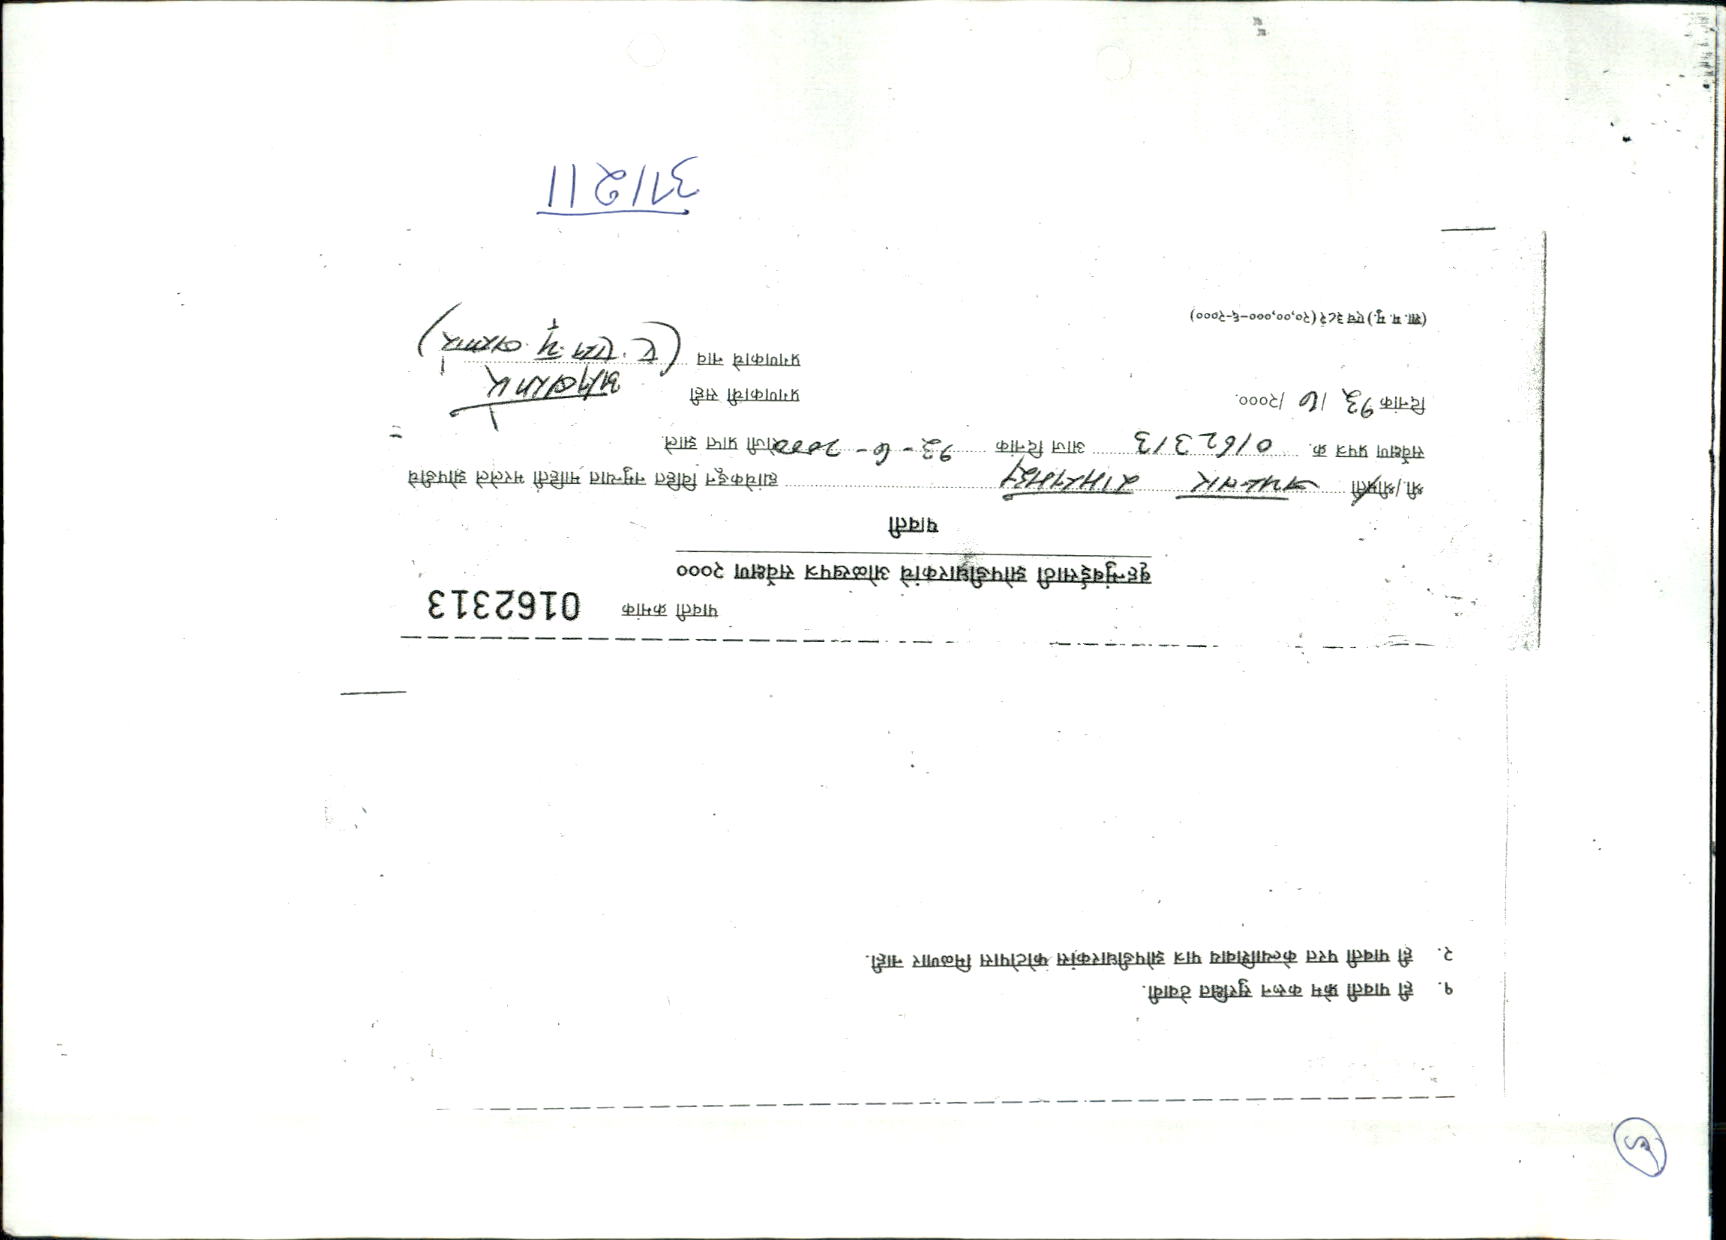 १. ही पावती फ्रेम करून सुरक्षित ठेवावी.
२. ही पावती परत केल्याशिवाय पात्र झोपडीधारकांस फोटोपास मिळणार नाही.
पावती क्रमांक 0162313
बृहन्मुंबईसाठी झोपडीधारकांचे ओळखपत्र सर्वेक्षण २०००
पावती
श्री./श्रीमती रामसमझ ह्यांचेकडून विहित नमुन्यात माहिती भरलेले झोपडीचे
सर्वेक्षण प्रपत्र क्र. 0162313 आज दिनांक १३-७-2000 रोजी प्राप्त झाले.
दिनांक १३ /७ /२०००.
प्रगणकाची सही
प्रगणकाचे नाव
(शा. म. मु.) एच ३८२ (२०,००,०००-६-२०००)
आशा